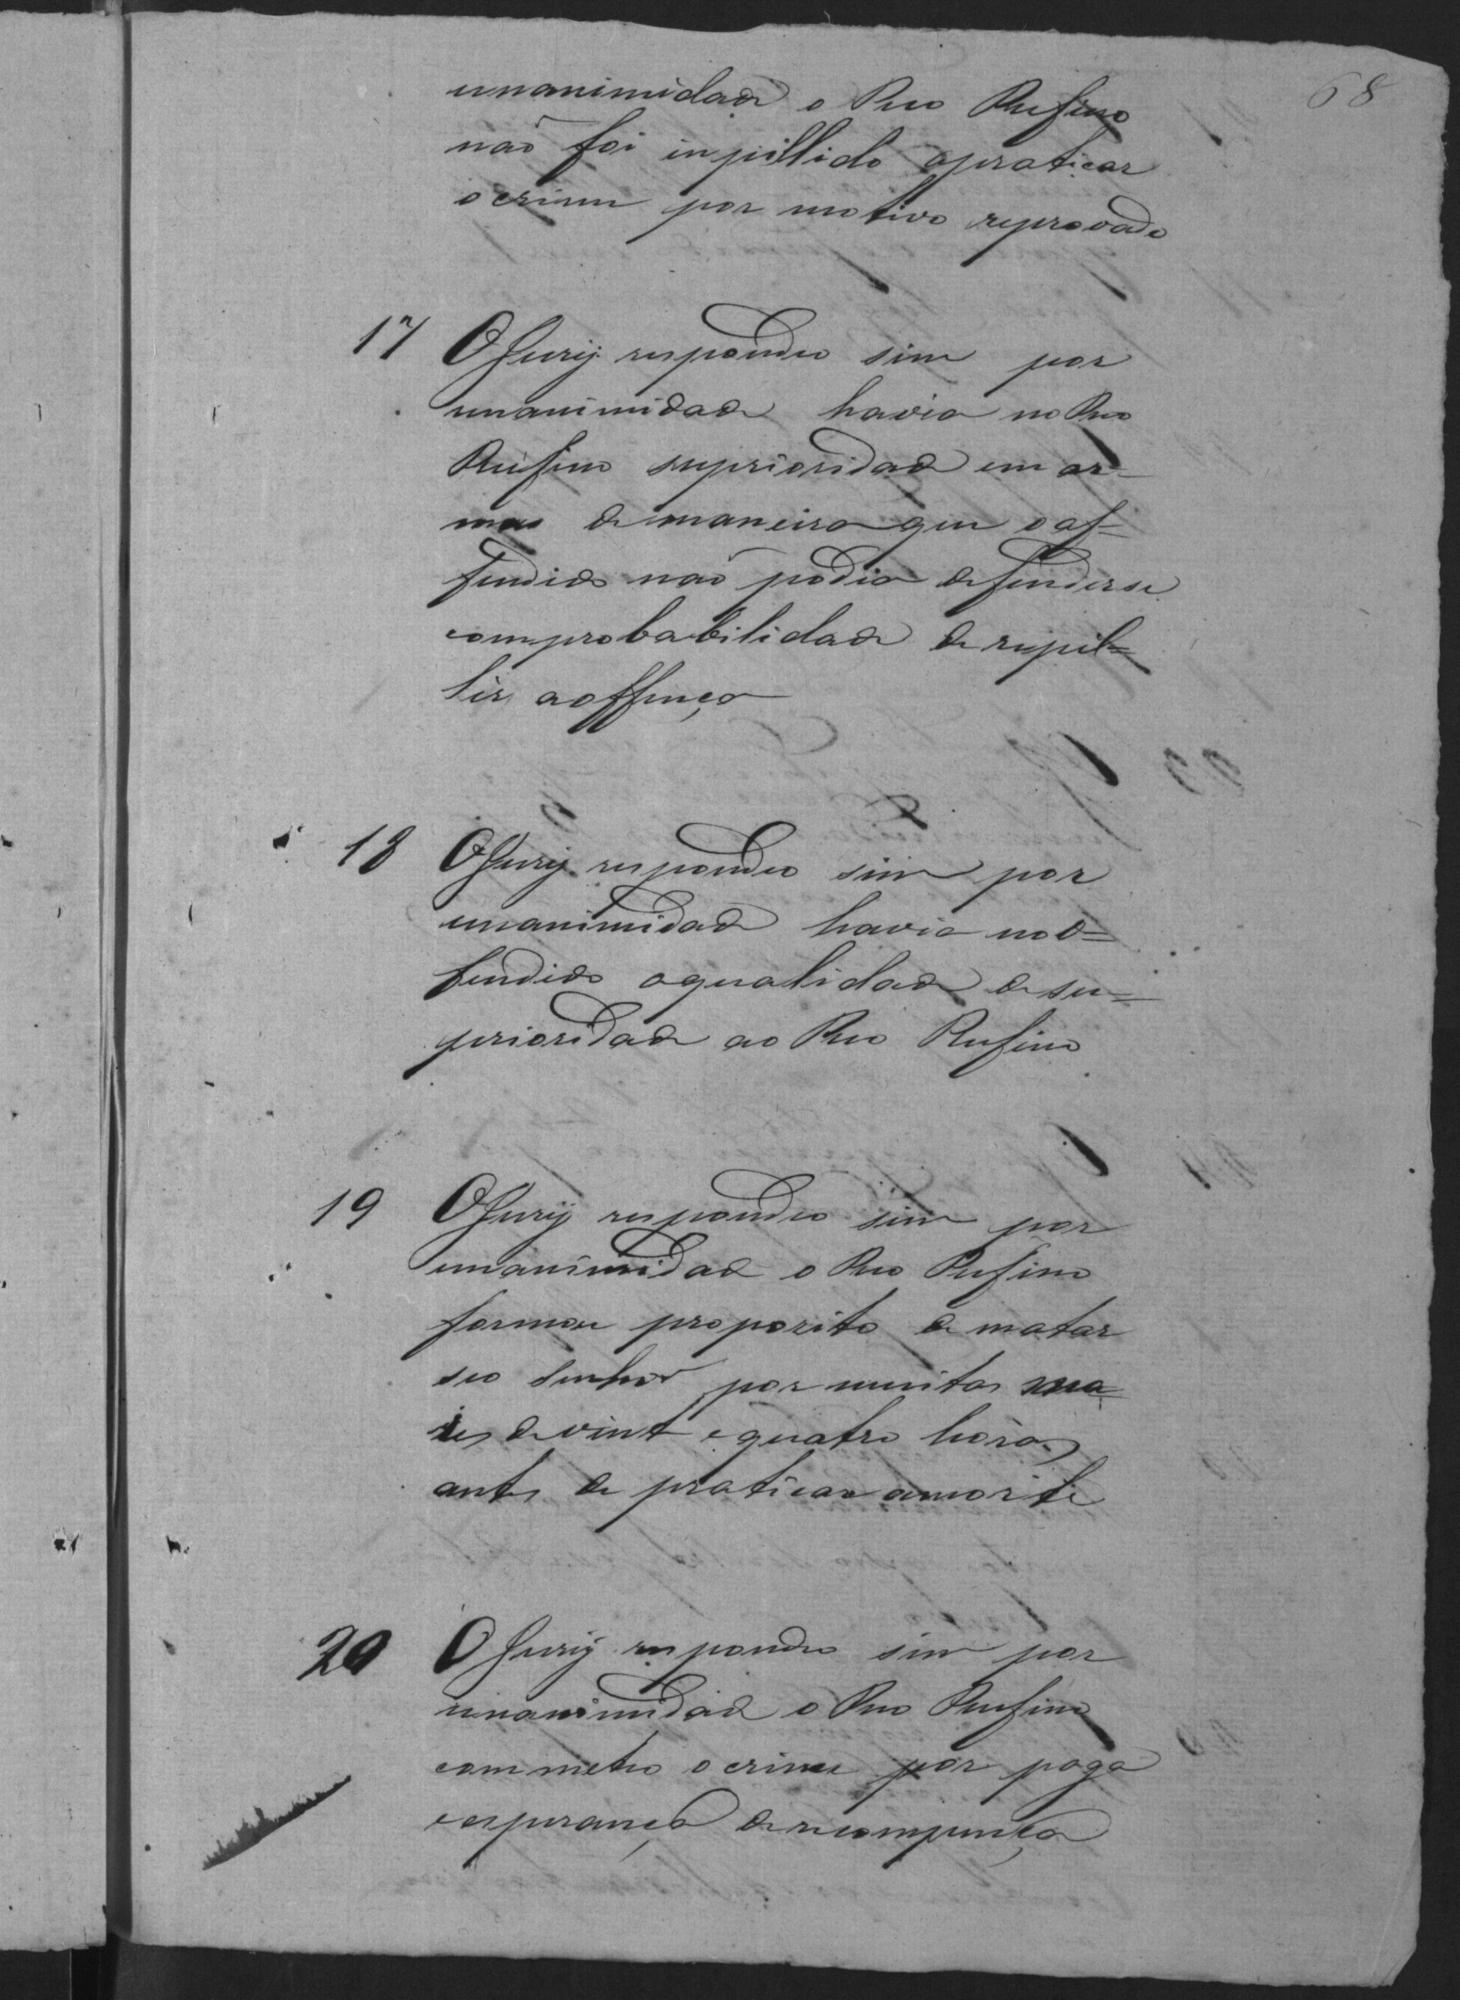 68
unanimidade o Reo Rufino
não foi inpillido apraticar
o crime por motivo reprovado
17 O Jury respondeu sim por
unanimidade havia no Reo
Rufino suprioridade em ar=
mas de maneira que o af=
fendido não podia defenderse
com probabilidade de repil=
lir a offença
18 O Jury respondeo sim por
unanimidade havia no O=
fendido a qualidade de su=
perioridade ao Reo Rufino
19 O Jury respondeo sim por
unanimidade o Reo Rufino
formou propozito de matar
seo senhor por muitas ma=
is de vinte e quatro horas
antes de praticar a morte
20 O Jury respondeo sim por
unanimidade o Reo Rufino
commeteo o crime por paga
e esperança de recompença